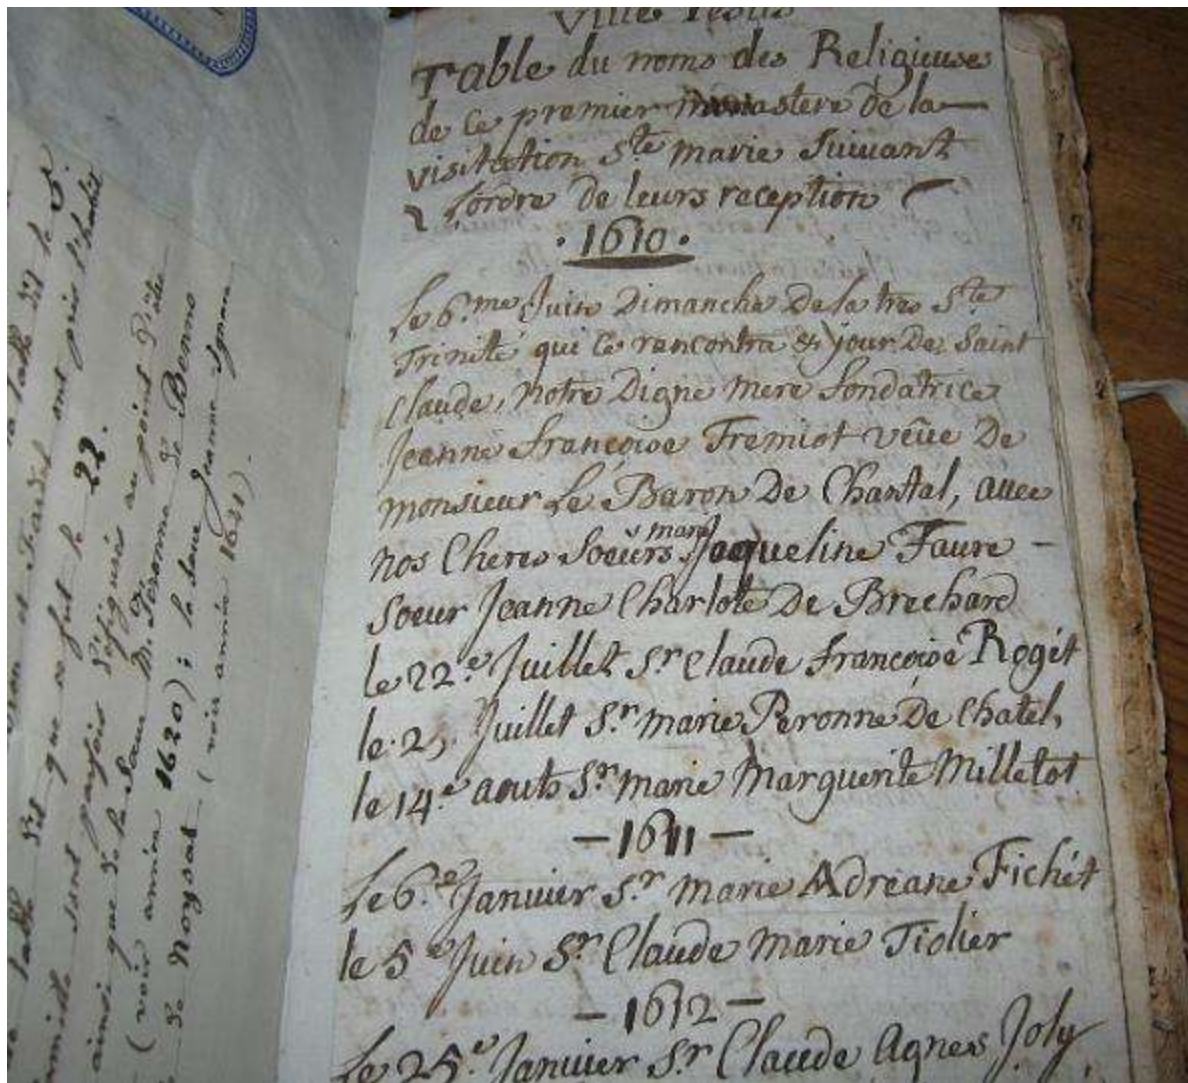 Ville Jesus
Table du noms des Religieuse
de ce premier monastere de la
visitation Ste marie Suivant
Lordre de leurs reception
. 1610 .
Le 6.me Juin Dimanche De la tres Ste
Trinité qui ce rencontra le jour De Saint
Claude, notre Digne mere fondatrice
Jeanne françoise Fremiot vëue De
monsieur Le Baron De Chantal, avec
nos Cheres Soeurs marie Jaqueline Faure -
Soeur Jeanne Charlote De Brechard
le 22.e Juillet Sr Claude françoise Rogét
le 25. Juillet S.r marie Peronne De Chatel,
le 14.e aouts Sr marie Marguerite Milletot
- 1611 -
Le 6.e Janvier Sr marie Adreane Fichét
le 5 e Juin Sr Claude marie Tiolier
- 1612 -
Le 25.e Janvier Sr Claude Agnes Joly
la table dit le 5.
ont pris l'habit
table dit que ce fut le 22.
sont parfois défigurés au point d'être
ainsi que de la Soeur M. Péronne de Benno
(voir année 1620) ; la soeur Jeanne Ignace
de Noysat (voir année 1621).